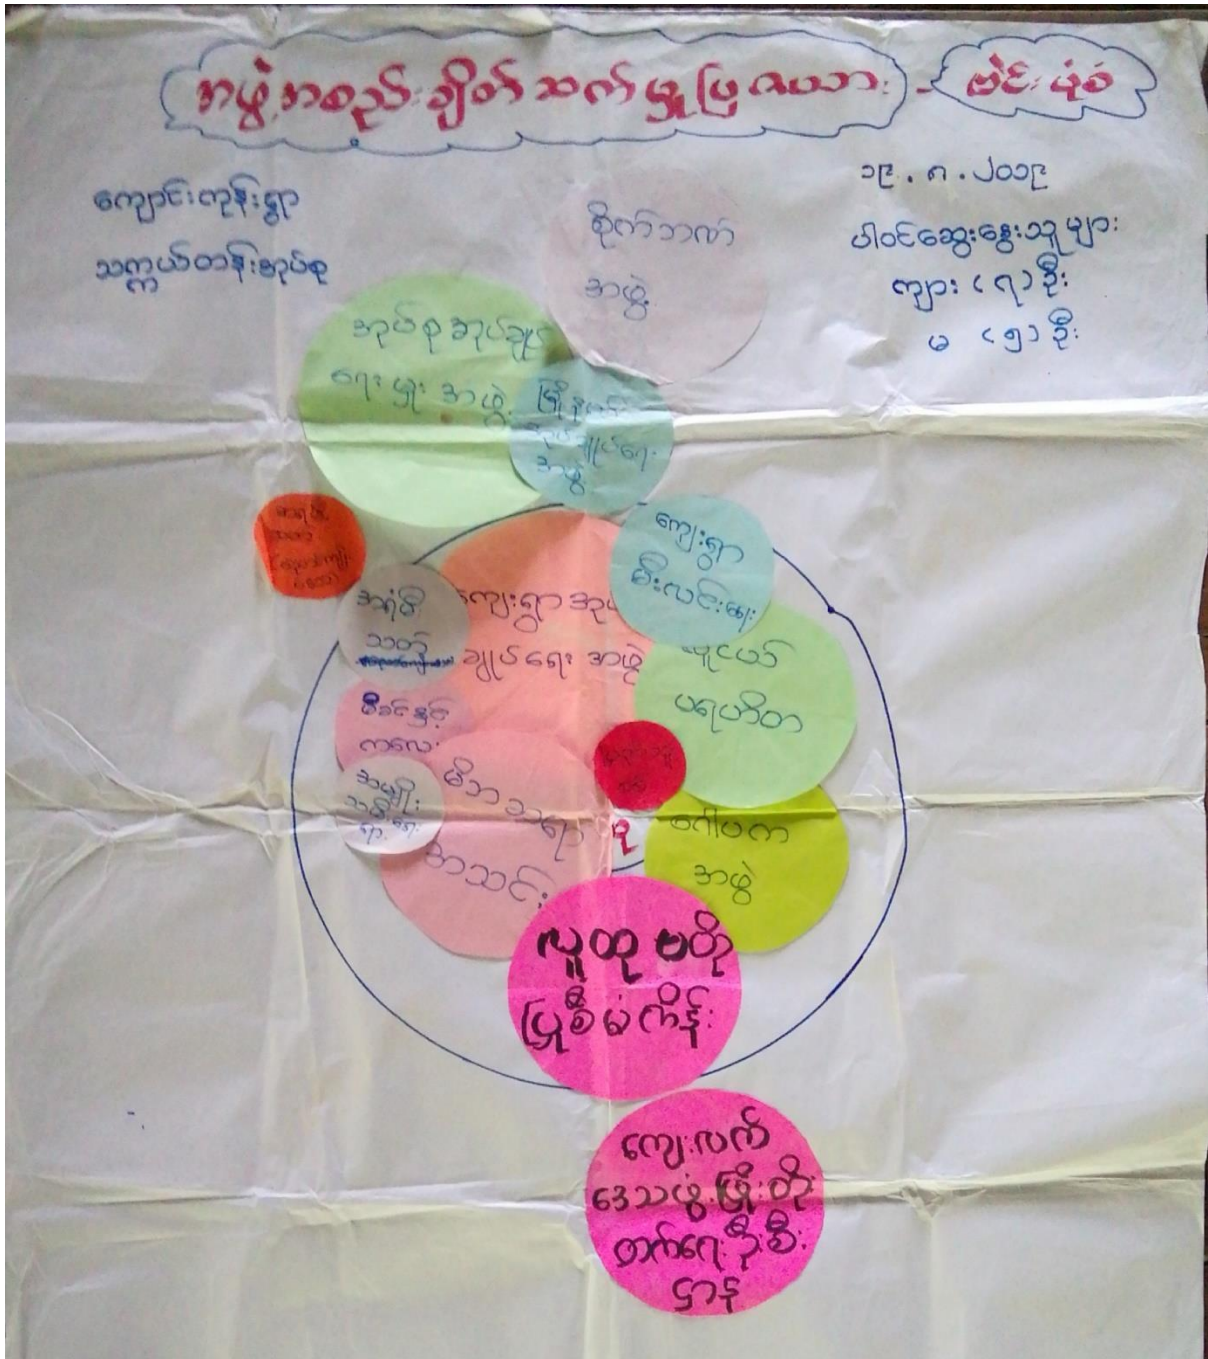 အဖွဲ့အစည်းချိတ်ဆက်မှုပြဇယား - ဗင်းပုံစံ
ကျောင်းကုန်းရွာ
သက္ကယ်တန်းအုပ်စု
၁၉.၈.၂၀၁၉
ပါဝင်ဆွေးနွေးသူများ
ကျား (၇) ဦး
မ (၅) ဦး
စိုက်ဘဏ်
အဖွဲ့
အုပ်စုအုပ်ချုပ်
ရေးမှူးအဖွဲ့
မြို့နယ်
အုပ်ချုပ်ရေး
အဖွဲ့
ကျေးရွာ
မီးလင်းရေး
အရံမီး
သတ်
ကျေးရွာအုပ်
ချုပ်ရေး အဖွဲ့
လူငယ်
ပရဟိတ
မိခင်နှင့်
ကလေး
အမျိုး
သမီးရေး
ရာ
မိဘဆရာ
အသင်း
ဂေါပက
အဖွဲ့
လူထုဗဟို
ပြုစီမံကိန်း
ကျေးလက်
ဒေသဖွံ့ဖြိုးတိုး
တက်ရေးဦးစီး
ဌာန